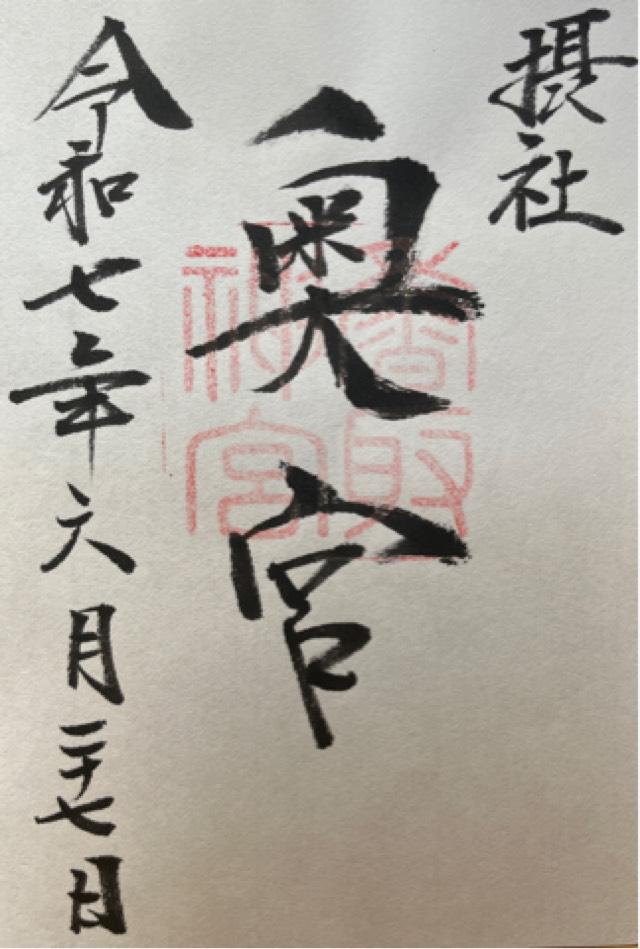 摂社
奥宮
香取神宮
令和七年六月二十七日